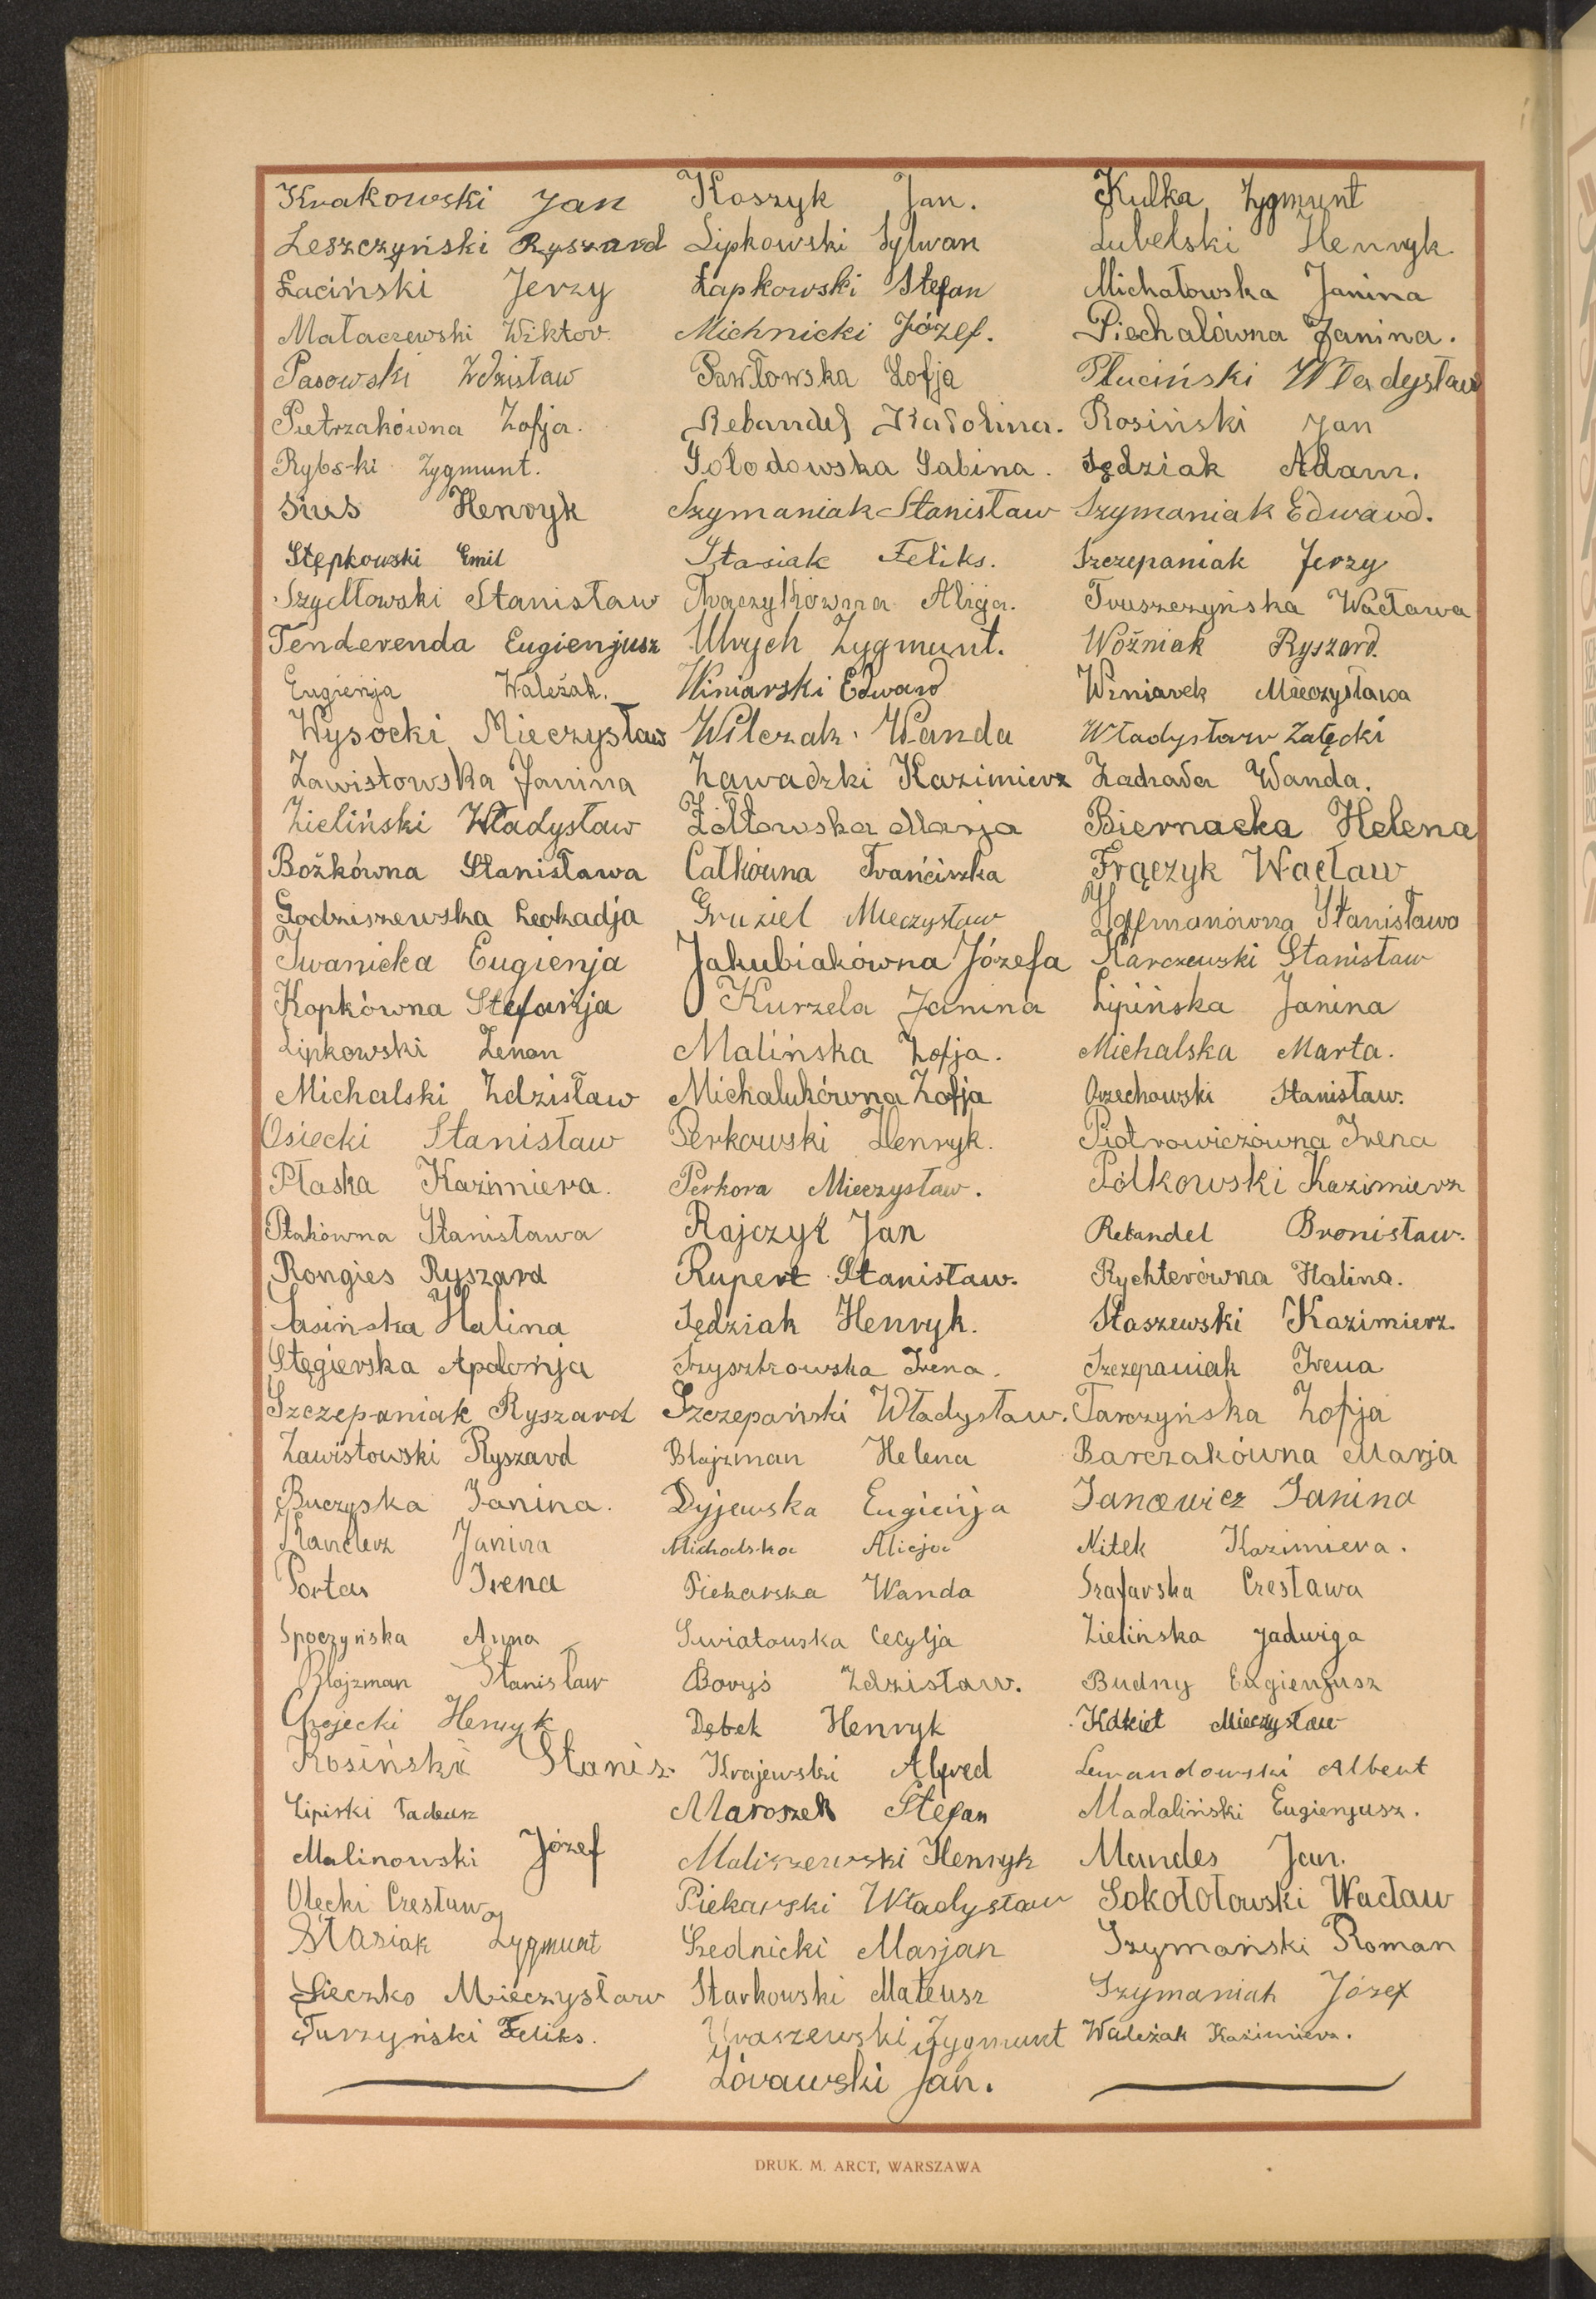 Krakowski Jan Koszyk Jan. Kulka Zygmunt
Leszczyński Ryszard Lipkowski Sylwan Lubelski Henryk.
Łaciński Jerzy Łapkowski Stefan Michałowska Janina
Małaczewski Wiktor. Michnicki Józef. Piechalówna Janina.
Pasowski Zdzisław Pawłowska Zofja Płuciński Władysław
Pietrzakówna Zofja. Rebandel Karolina. Rosiński Jan
Rybs-ki Zygmunt. Sołodowska Sabina. Sędziak Adam.
Sius Henryk Szymaniak Stanisław Szymaniak Edward.
Stępkowski Emil Stasiak Feliks. Szczepaniak Jerzy
Szydłowski Stanisław Tkaczykówna Alicja. Truszczyńska Wacława
Tenderenda Eugienjusz Ulrych Zygmunt. Woźniak Ryszard.
Eugienja Waleźak. Winiarski Edward Winiarek Mieczysława
Wysocki Mieczysław Wilczak Wanda Władysław Załęcki
Zawistowska Janina Zawadzki Kazimierz Zadrada Wanda.
Zieliński Władysław Żółtowska Marja Biernacka Helena
Bożkówna Stanisława Całkówna Frańciszka Frączyk Wacław
Godziszewska Leokadja Gruziel Mieczysław Hoffmanówna Stanisława
Iwanicka Eugienja Jakubiakówna Józefa Karczewski Stanisław
Kopkówna Stefańja Kurzela Janina Lipińska Janina
Lipkowski Zenon Malińska Zofja. Michalska Marta.
Michalski Zdzisław Michalukówna Zofja Orzechowski Stanisław.
Osiecki Stanisław Perkowski Henryk. Piotrowiczówna Irena
Płaska Kazimiera. Perkora Mieczysław. Polkowski Kazimierz
Ptakówna Stanisława Rajczyk Jan Rebandel Bronisław.
Rongies Ryszard Rupert Stanisław. Rychterówna Halina.
Sasińska Halina Sędziak Henryk. Staszewski Kazimierz.
Stęgierska Apolońja Szysztrowska Irena. Szczepaniak Irena
Szczepaniak Ryszard Szczepański Władysław. Tarczyńska Zofja
Zawistowski Ryszard Blajzman Helena Barczakówna Marja
Buczyska Janina. Dyjewska Eugieńja Jancewicz Janina
Kanclerz Janina Michalska Alicja Nitek Kazimiera.
Portas Irena Piekarska Wanda Szafarska Czesława
Spoczyńska Anna Swiatowska Cecylja Zielińska Jadwiga
Blajzman Stanisław Boryś Zdzisław. Budny Eugienjusz
Chojecki Henryk Dębek Henryk Kdkiet Mieczysław
Kosiński Stanis. Krajewski Alfred Lewandowski Albert
Lipiński Tadeusz Maroszek Stefan Madaliński Eugienjusz.
Malinowski Józef Maliszewski Henryk Mandes Jan.
Olecki Czesław Piekarski Władysław Sokołołowski Wacław
Stasiak Zygmunt Średnicki Marjan Szymański Roman
Sieczko Mieczysław Starkowski Mateusz Szymaniak Józef
Turzyński Feliks. Uraszewski Zygmunt Waleźak Kazimiera.
Żórawski Jan.
DRUK. M. ARCT, WARSZAWA